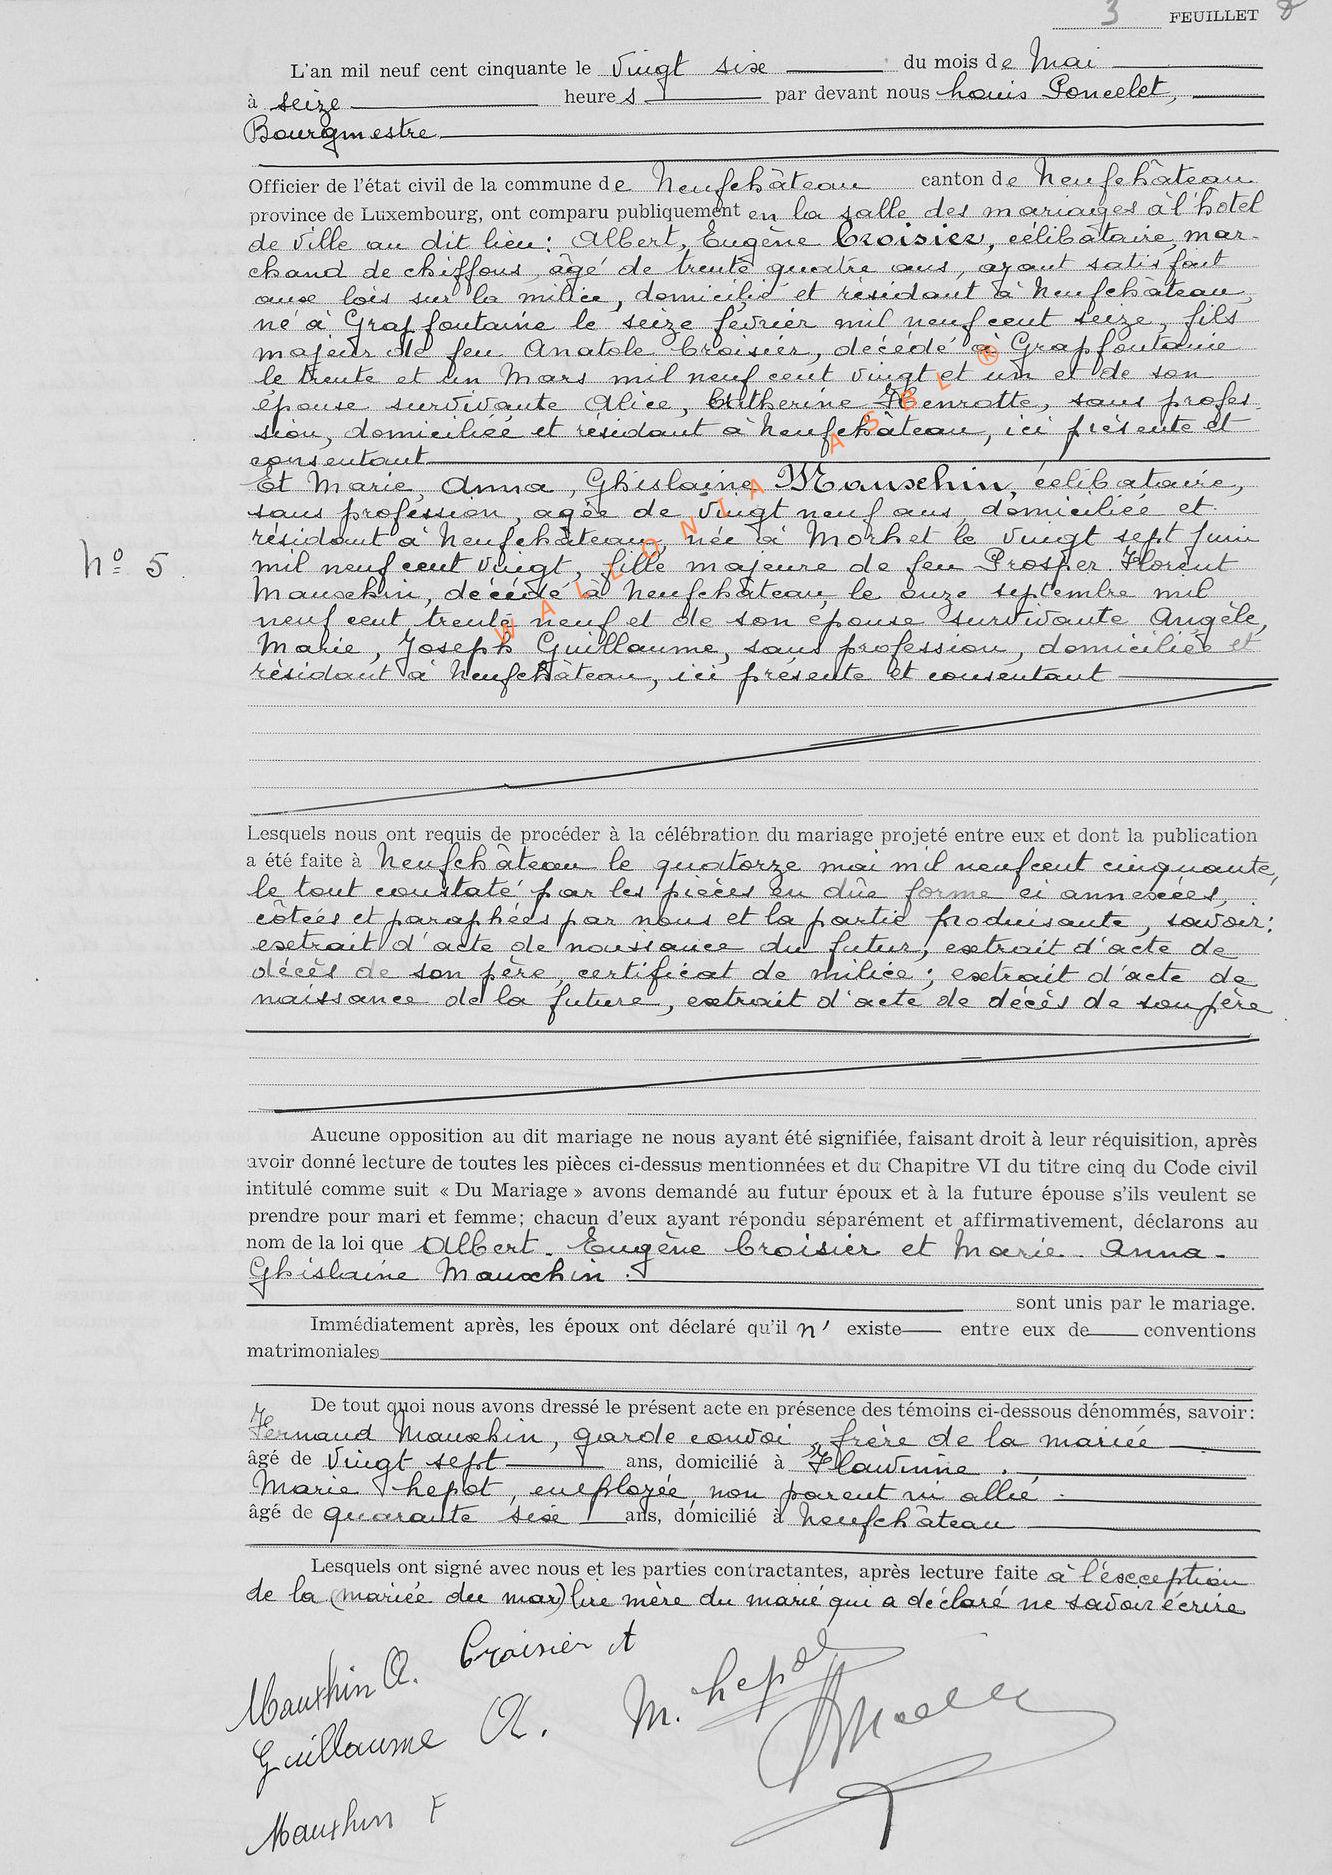 3 FEUILLET 8
L'an mil neuf cent cinquante le vingt six du mois de Mai
à seize heures par devant nous Louis Poncelet,
Bourgmestre
Officier de l'état civil de la commune de Neufchâteau canton de Neufchâteau
province de Luxembourg, ont comparu publiquement en la salle des mariages à l'hôtel
de ville au dit lieu: Albert, Eugène Croisier, célibataire, mar-
chand de chiffons, âgé de trente quatre ans, ayant satisfait
aux lois sur la milice, domicilié et résidant à Neufchâteau,
né à Grapfontaine le seize février mil neuf cent seize, fils
majeur de feu Anatole Croisier, décédé à Grapfontaine
le trente et un Mars mil neuf cent vingt et un et de son
épouse survivante Alice, Catherine Henrotte, sans profes-
sion, domiciliée et résidant à Neufchâteau, ici présente et
consentant
Et Marie, Anna, Ghislaine Mauxhin, célibataire,
sans profession, agée de vingt neuf ans, domiciliée et
résidant à Neufchâteau, née à Morhet le vingt sept juin
N° 5.
mil neuf cent vingt, fille majeure de feu Prosper Florent
Mauxhin, décédé à Neufchâteau le onze septembre mil
neuf cent trente neuf et de son épouse survivante Angèle,
Marie, Joseph Guillaume, sans profession, domiciliée et
résidant à Neufchâteau, ici présente et consentant
WALLONIA ASBL ®
Lesquels nous ont requis de procéder à la célébration du mariage projeté entre eux et dont la publication
a été faite à Neufchâteau le quatorze mai mil neufcent cinquante,
le tout constaté par les pièces en dûe forme ci annexées,
côtées et paraphées par nous et la partie produisante, savoir:
extrait d'acte de naissance du futur, extrait d'acte de
décès de son père, certificat de milice; extrait d'acte de
naissance de la future, extrait d'acte de décès de son père
Aucune opposition au dit mariage ne nous ayant été signifiée, faisant droit à leur réquisition, après
avoir donné lecture de toutes les pièces ci-dessus mentionnées et du Chapitre VI du titre cinq du Code civil
intitulé comme suit « Du Mariage » avons demandé au futur époux et à la future épouse s'ils veulent se
prendre pour mari et femme; chacun d'eux ayant répondu séparément et affirmativement, déclarons au
nom de la loi que Albert. Eugène Croisier et Marie. Anna-
Ghislaine Mauxhin.
sont unis par le mariage.
Immédiatement après, les époux ont déclaré qu'il n' existe entre eux de conventions
matrimoniales
De tout quoi nous avons dressé le présent acte en présence des témoins ci-dessous dénommés, savoir:
Fernand Mauxhin, garde convoi, frère de la mariée
âgé de vingt sept ans, domicilié à Flawinne.
Marie Lhepot, employée, non parent ni allié.
âgé de quarante six ans, domicilié à Neufchâteau
Lesquels ont signé avec nous et les parties contractantes, après lecture faite à l'exception
de la (mariée du mar) lire mère du marié qui a déclaré ne savoir écrire
Mauxhin A. Croisier A
Guillaume A. M.
Mauxhin F